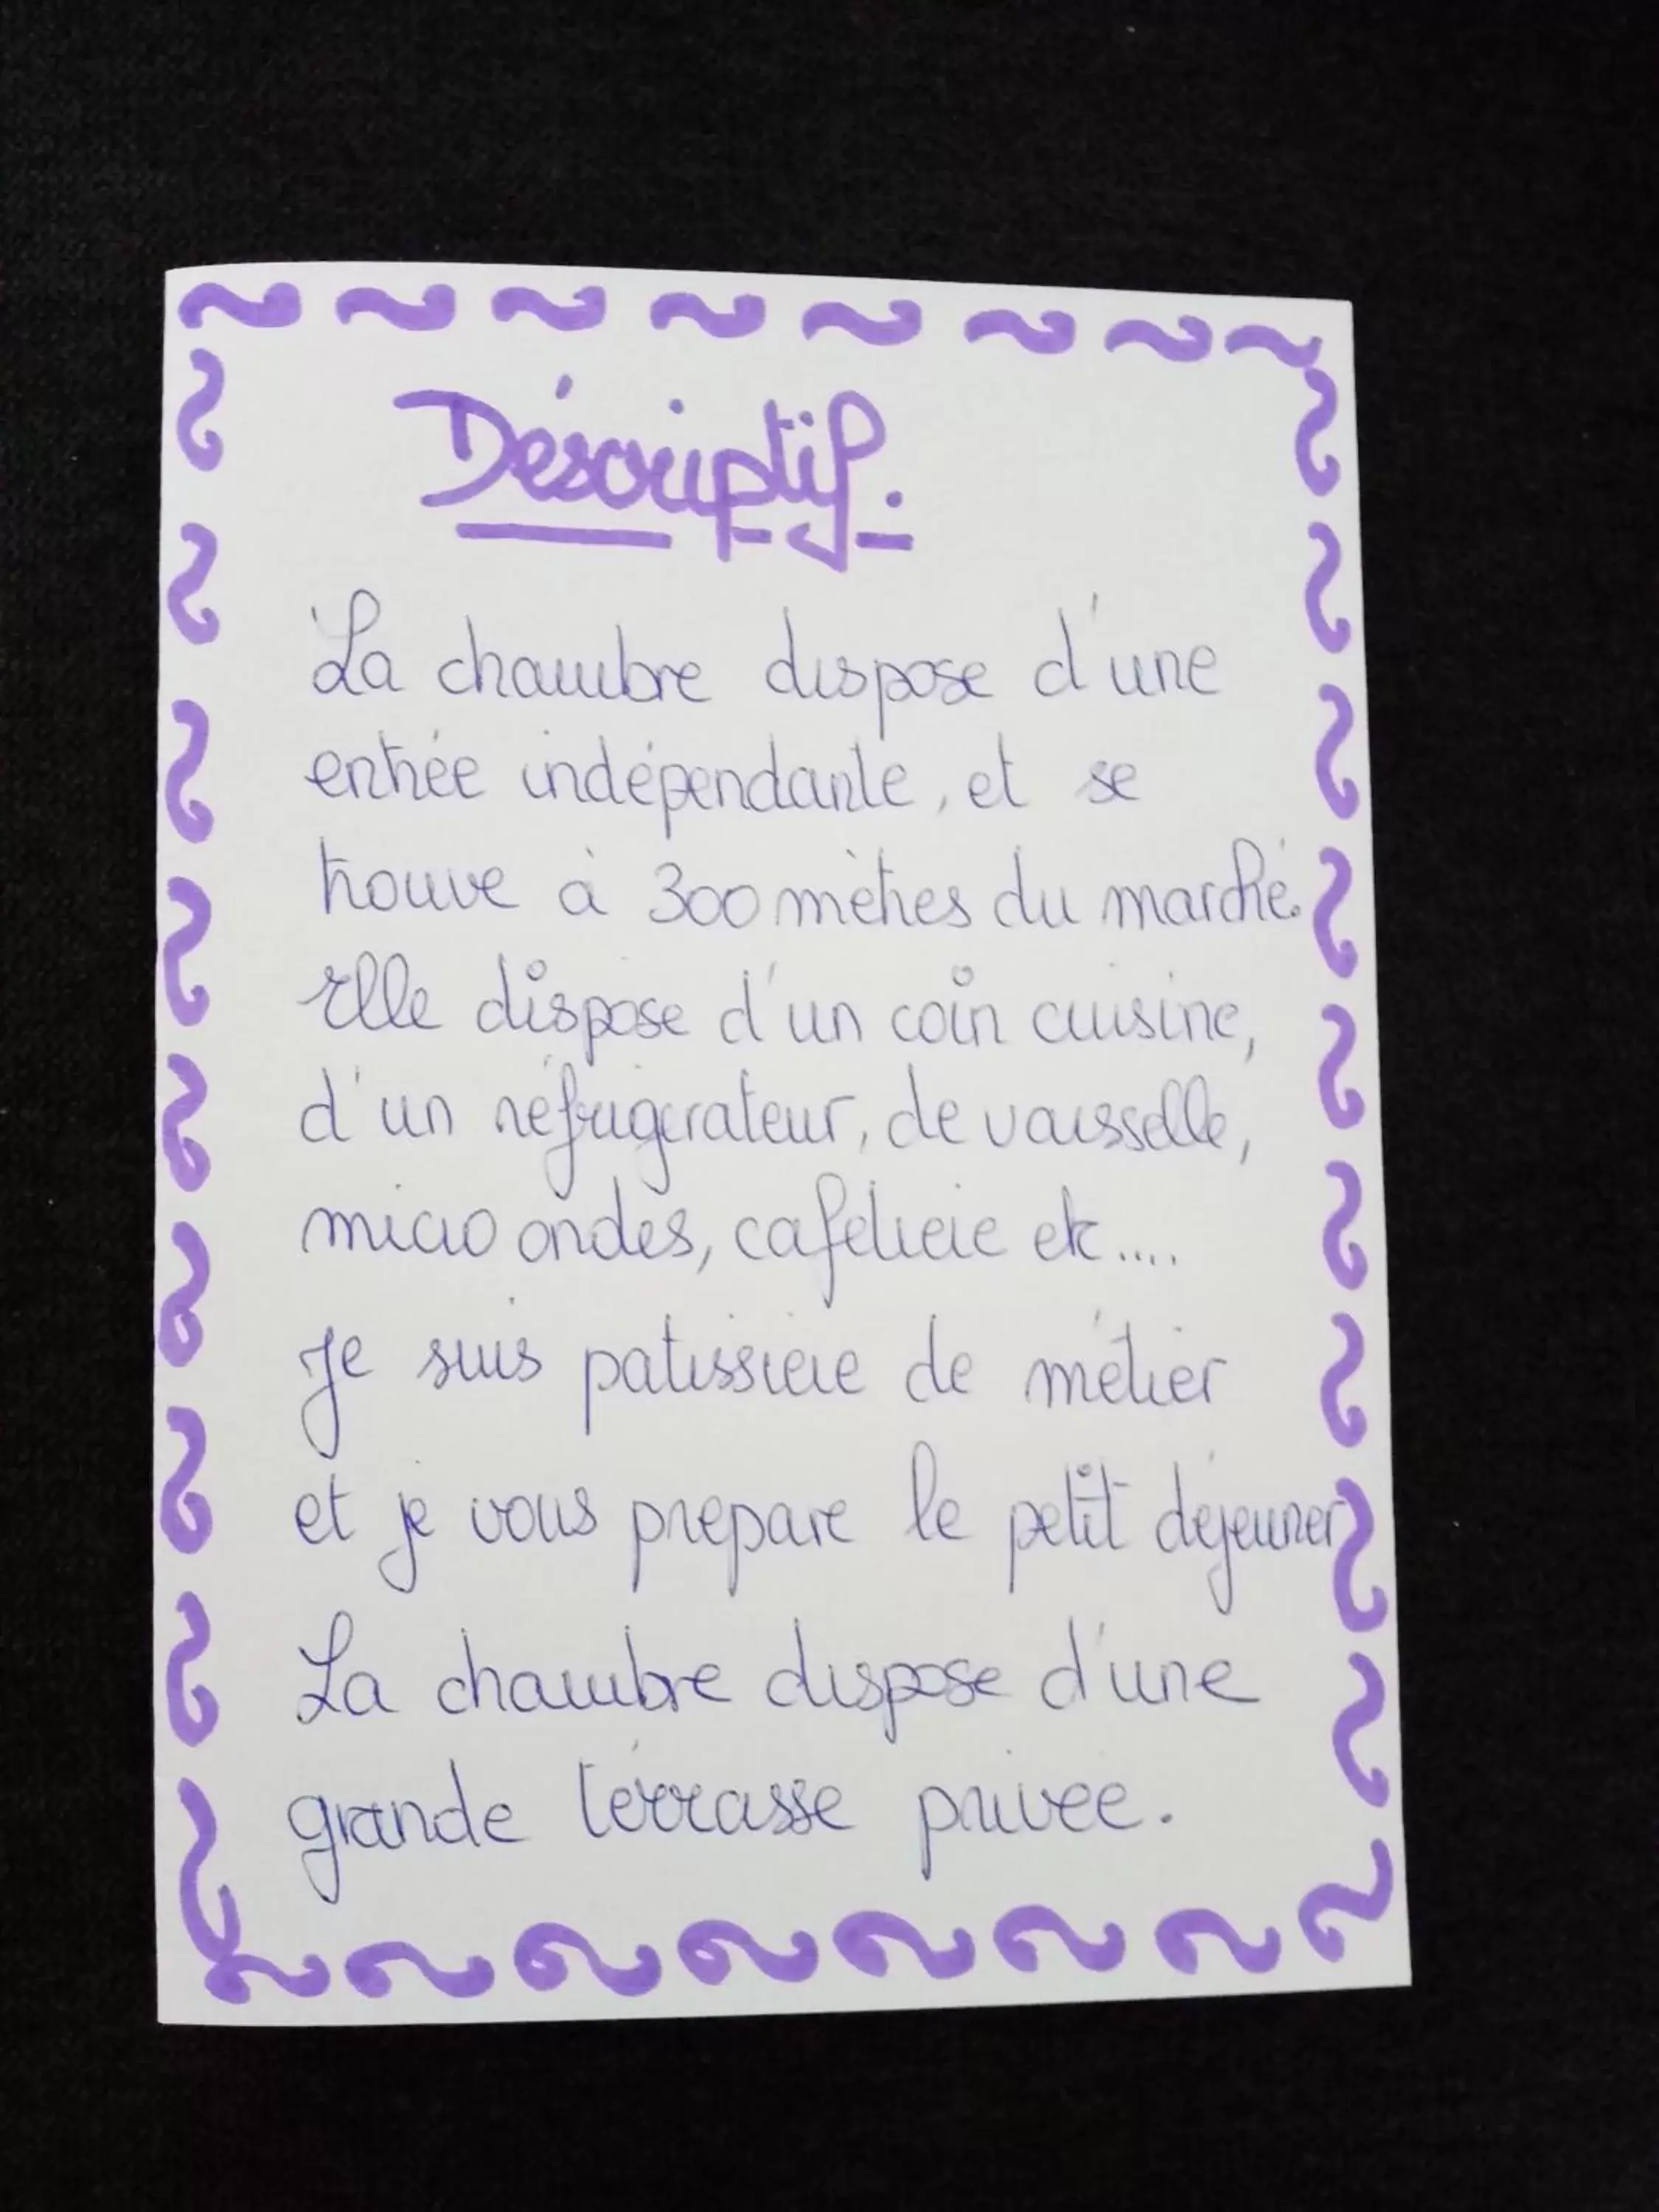 Déscriptif.
La chambre dispose d'une
entrée indépendante, et se
trouve à 300 mètres du marché.
Elle dispose d'un coin cuisine,
d'un réfrigérateur, de vaisselle,
micro ondes, cafetière etc....
Je suis patissière de métier
et je vous prépare le petit déjeuner
La chambre dispose d'une
grande térrasse privée.